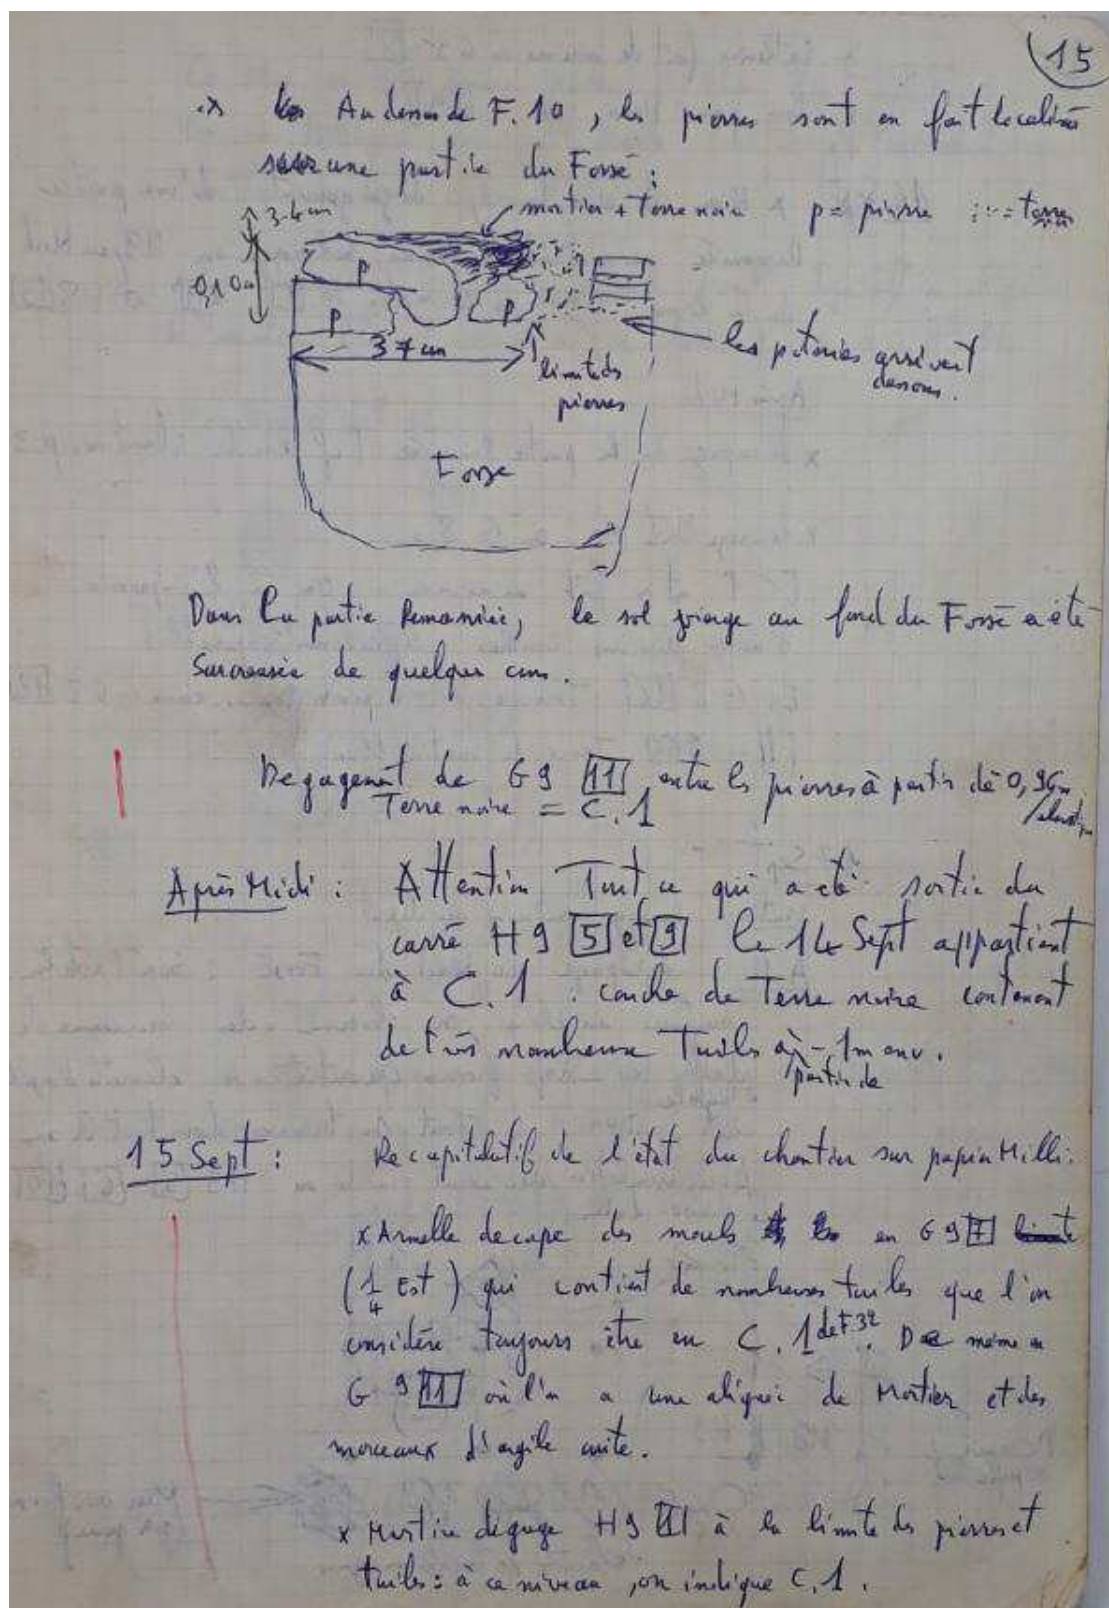 15
Au dessus de F.10, les pierres sont en fait localisées
sur une partie du Fossé :
3.4 cm
mortier + terre noire p = pierre = terre
0,10 m
p
p
p
37 cm
limite des
pierres
les poteries arrivent
dessous.
Fosse
Dans la partie Remaniée, le sol vierge au fond du Fossé a été
Surcreusée de quelques cms.
Degagement de G9 11 entre les pierres à partir de 0,96m
Terre noire = C.1
Après Midi : Attention Tout ce qui a été sortie du
carré H9 5 et 9 le 14 Sept appartient
à C.1 : couche de Terre noire contenant
de très nombreuses Tuiles à - 1m env.
partir de
15 Sept : Recapitulatif de l'état du chantier sur papier Milli.
x Armelle decape des en G9 7
(1/4 Est) qui contient de nombreuses tuiles que l'on
considère toujours être en C.1 de F32. De même en
G 9 11 où l'on a une de Mortier et des
morceaux d'argile cuite.
x Martine dégage H9 à la limite des pierres et
tuiles : à ce niveau, on indique C.1.